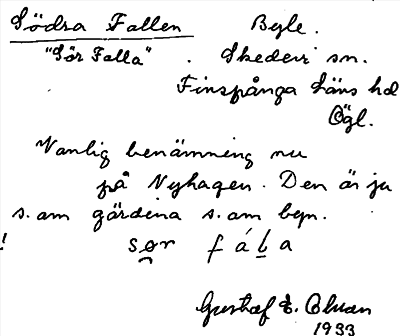 Södra Fallen Begle.
"Sör Falla" . Skedevi sn.
Finspånga läns hd
Ögl.
Vanlig benämning nu
på Nyhagen. Den är ju
s.om gärdena s.om byn.
! sør fáḷa
Gustaf E. Olsson
1933